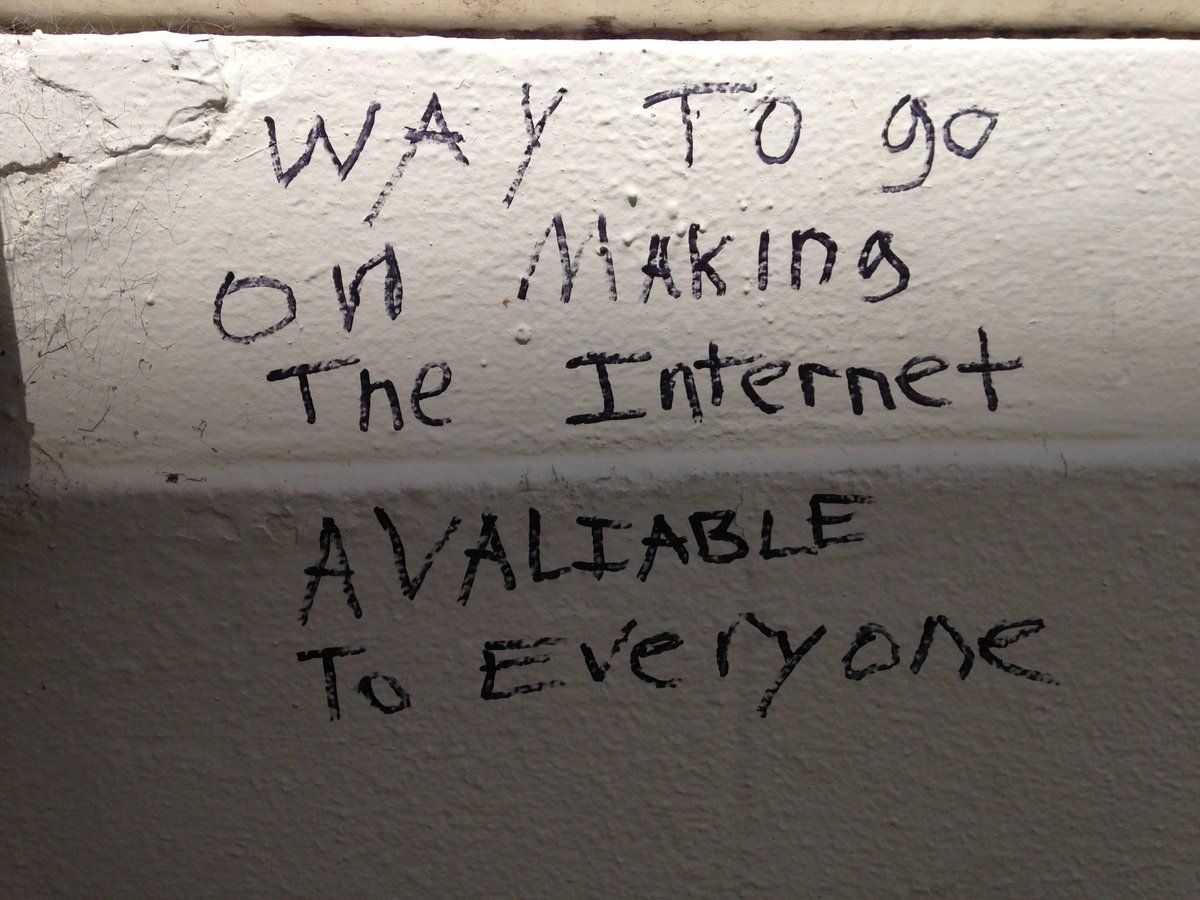 WAY To go
on Making
The Internet
AVALIABLE
To Everyone